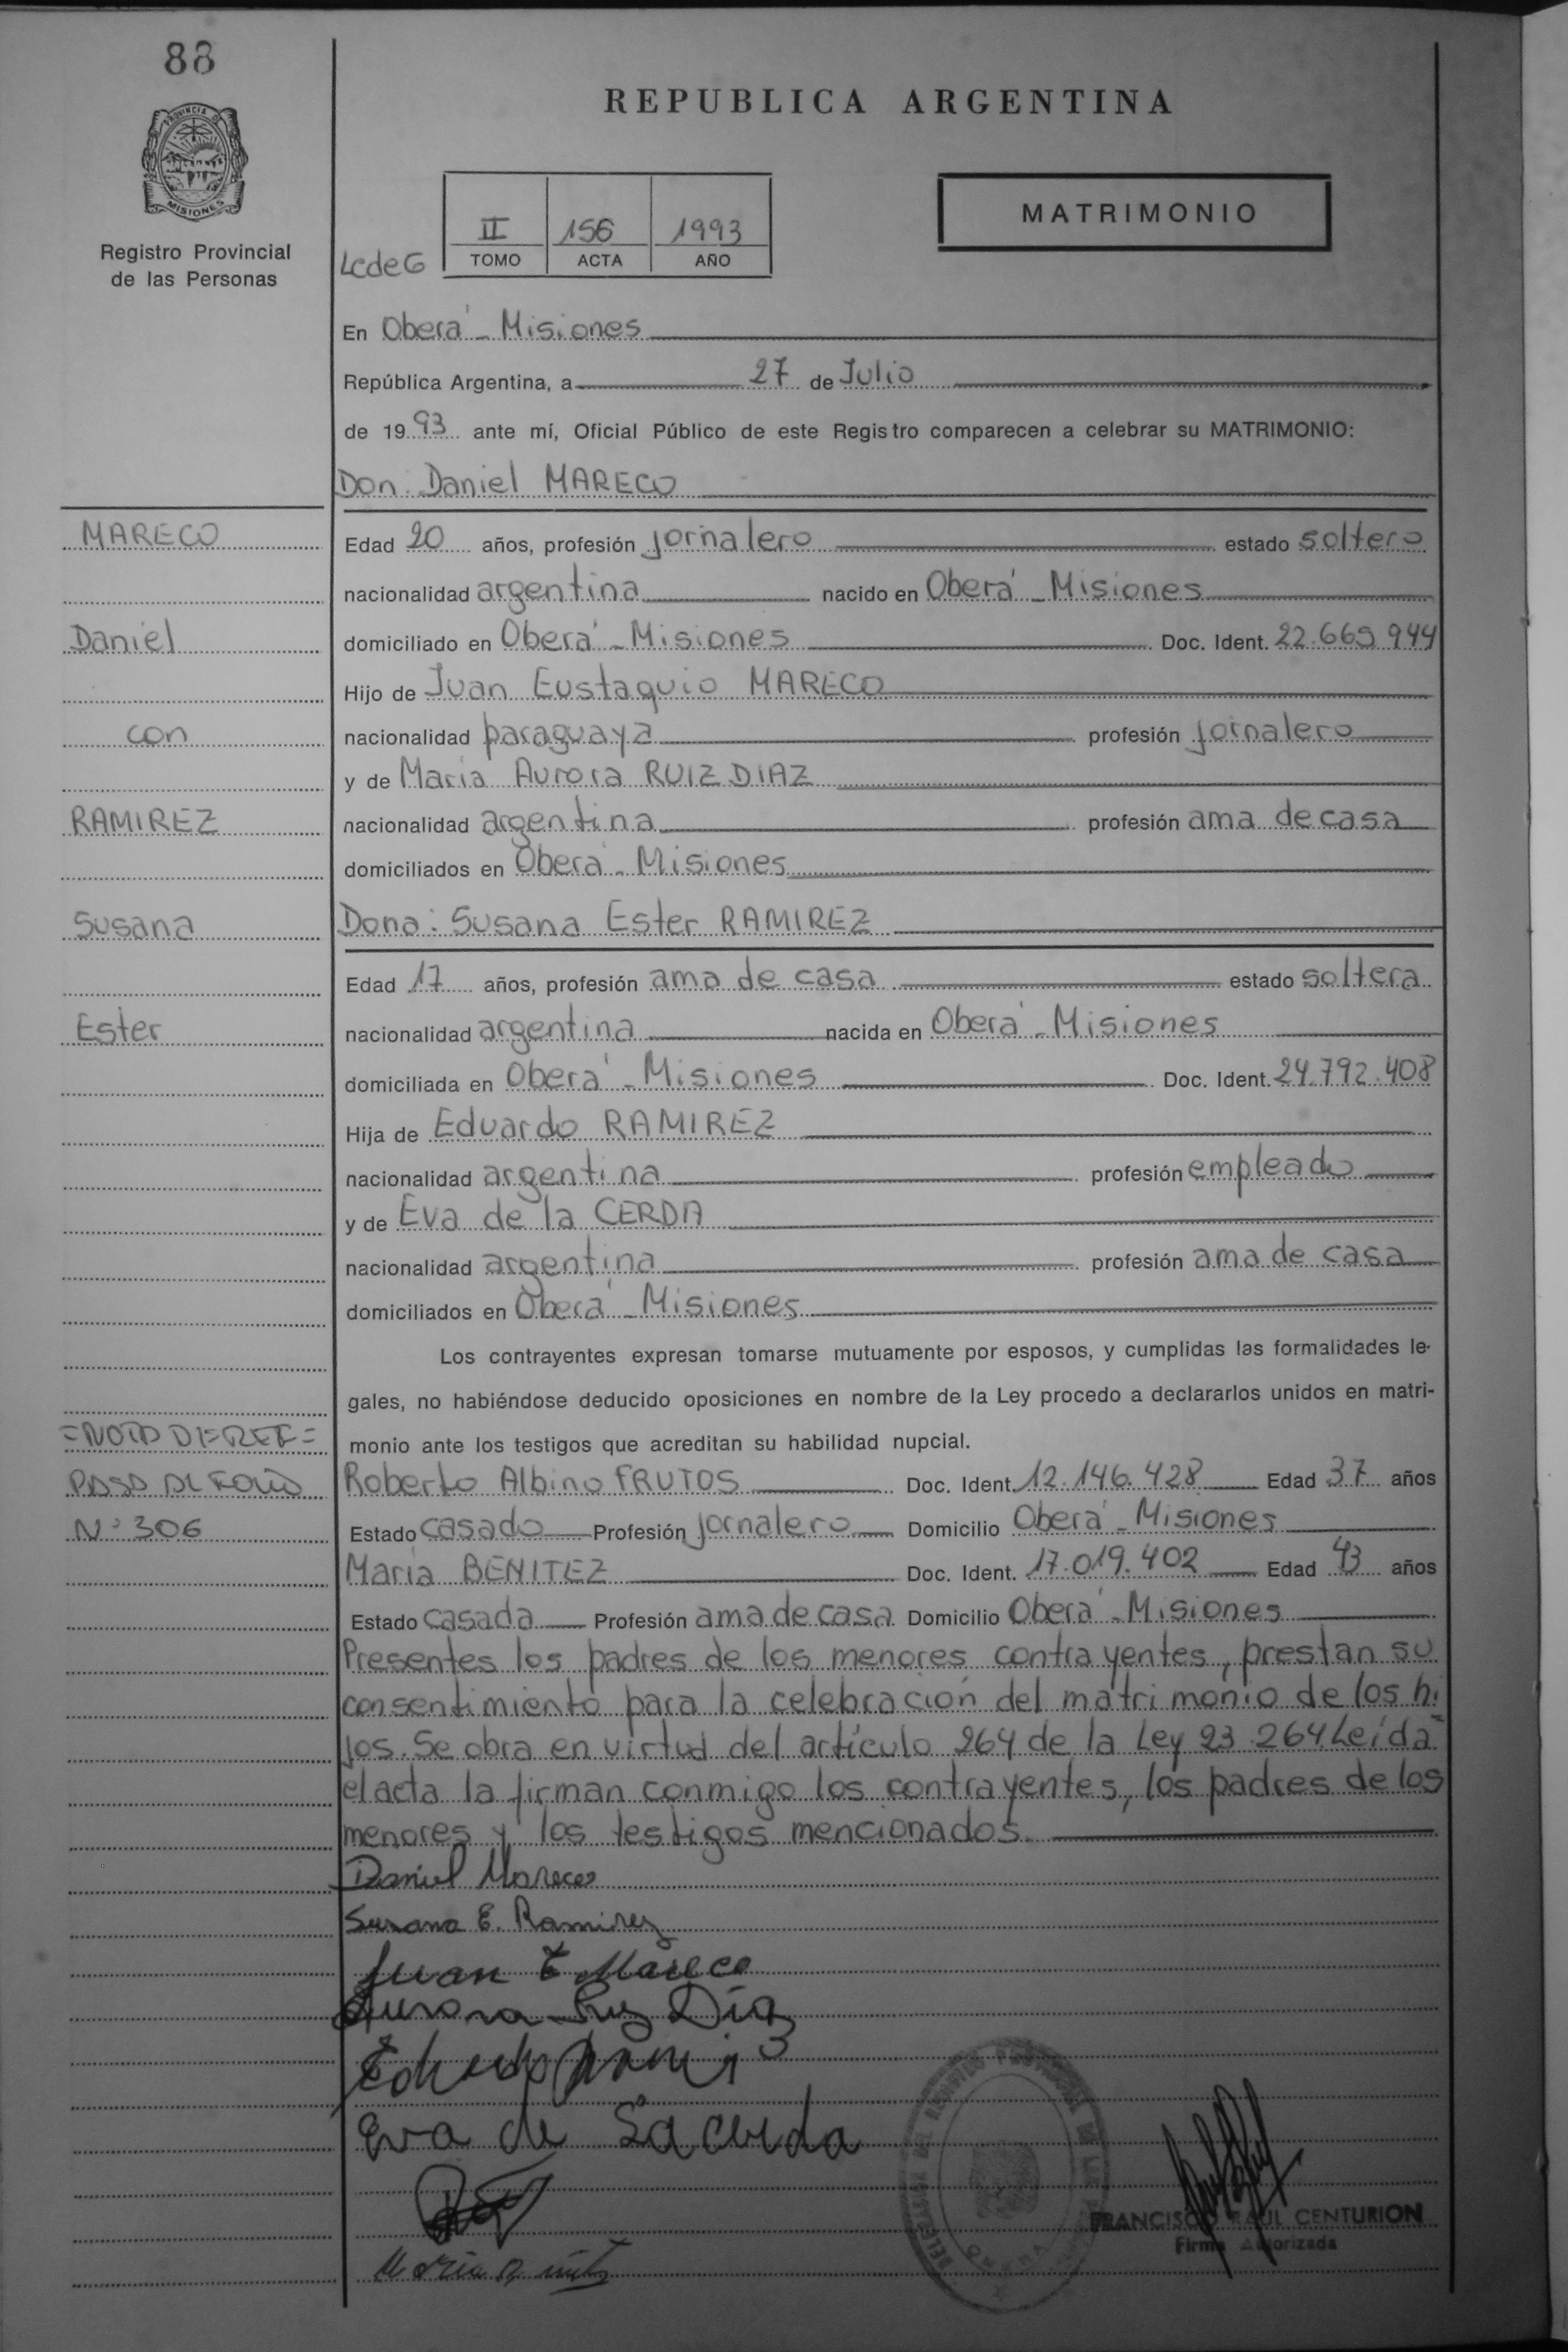 88
REPUBLICA ARGENTINA
PROVINCIA DE
MISIONES
Registro Provincial
de las Personas
LcdeG
II 156 1993
TOMO ACTA AÑO
MATRIMONIO
En Oberá - Misiones
República Argentina, a 27 de Julio
de 1993 ante mí, Oficial Público de este Registro comparecen a celebrar su MATRIMONIO:
Don: Daniel MARECO
MARECO
Edad 20 años, profesión jornalero estado soltero
nacionalidad argentina nacido en Oberá - Misiones
Daniel
domiciliado en Oberá - Misiones Doc. Ident. 22.669.944
Hijo de Juan Eustaquio MARECO
con
nacionalidad paraguaya profesión jornalero
y de María Aurora RUIZ DIAZ
RAMIREZ
nacionalidad argentina profesión ama de casa
domiciliados en Oberá - Misiones
Susana
Dona: Susana Ester RAMIREZ
Edad 17 años, profesión ama de casa estado soltera
Ester
nacionalidad argentina nacida en Oberá - Misiones
domiciliada en Oberá - Misiones Doc. Ident. 24.792.408
Hija de Eduardo RAMIREZ
nacionalidad argentina profesión empleado
y de Eva de la CERDA
nacionalidad argentina profesión ama de casa
domiciliados en Oberá - Misiones
Los contrayentes expresan tomarse mutuamente por esposos, y cumplidas las formalidades le-
gales, no habiéndose deducido oposiciones en nombre de la Ley procedo a declararlos unidos en matri-
monio ante los testigos que acreditan su habilidad nupcial.
=NOTA DE REF=
PASA AL FOLIO
N° 306
Roberto Albino FRUTOS Doc. Ident. 12.146.428 Edad 37 años
Estado casado Profesión jornalero Domicilio Oberá - Misiones
María BENITEZ Doc. Ident. 17.019.402 Edad 43 años
Estado casada Profesión ama de casa Domicilio Oberá - Misiones
Presentes los padres de los menores contrayentes, prestan su
consentimiento para la celebración del matrimonio de los hi
jos. Se obra en virtud del artículo 264 de la Ley 23.264. Leída=
el acta la firman conmigo los contrayentes, los padres de los
menores y los testigos mencionados.
Daniel Mareco
Susana E. Ramirez
Juan E Mareco
Aurora Ruz Díaz
Eva de La Cerda
FRANCISCO RAUL CENTURION
Firma Autorizada